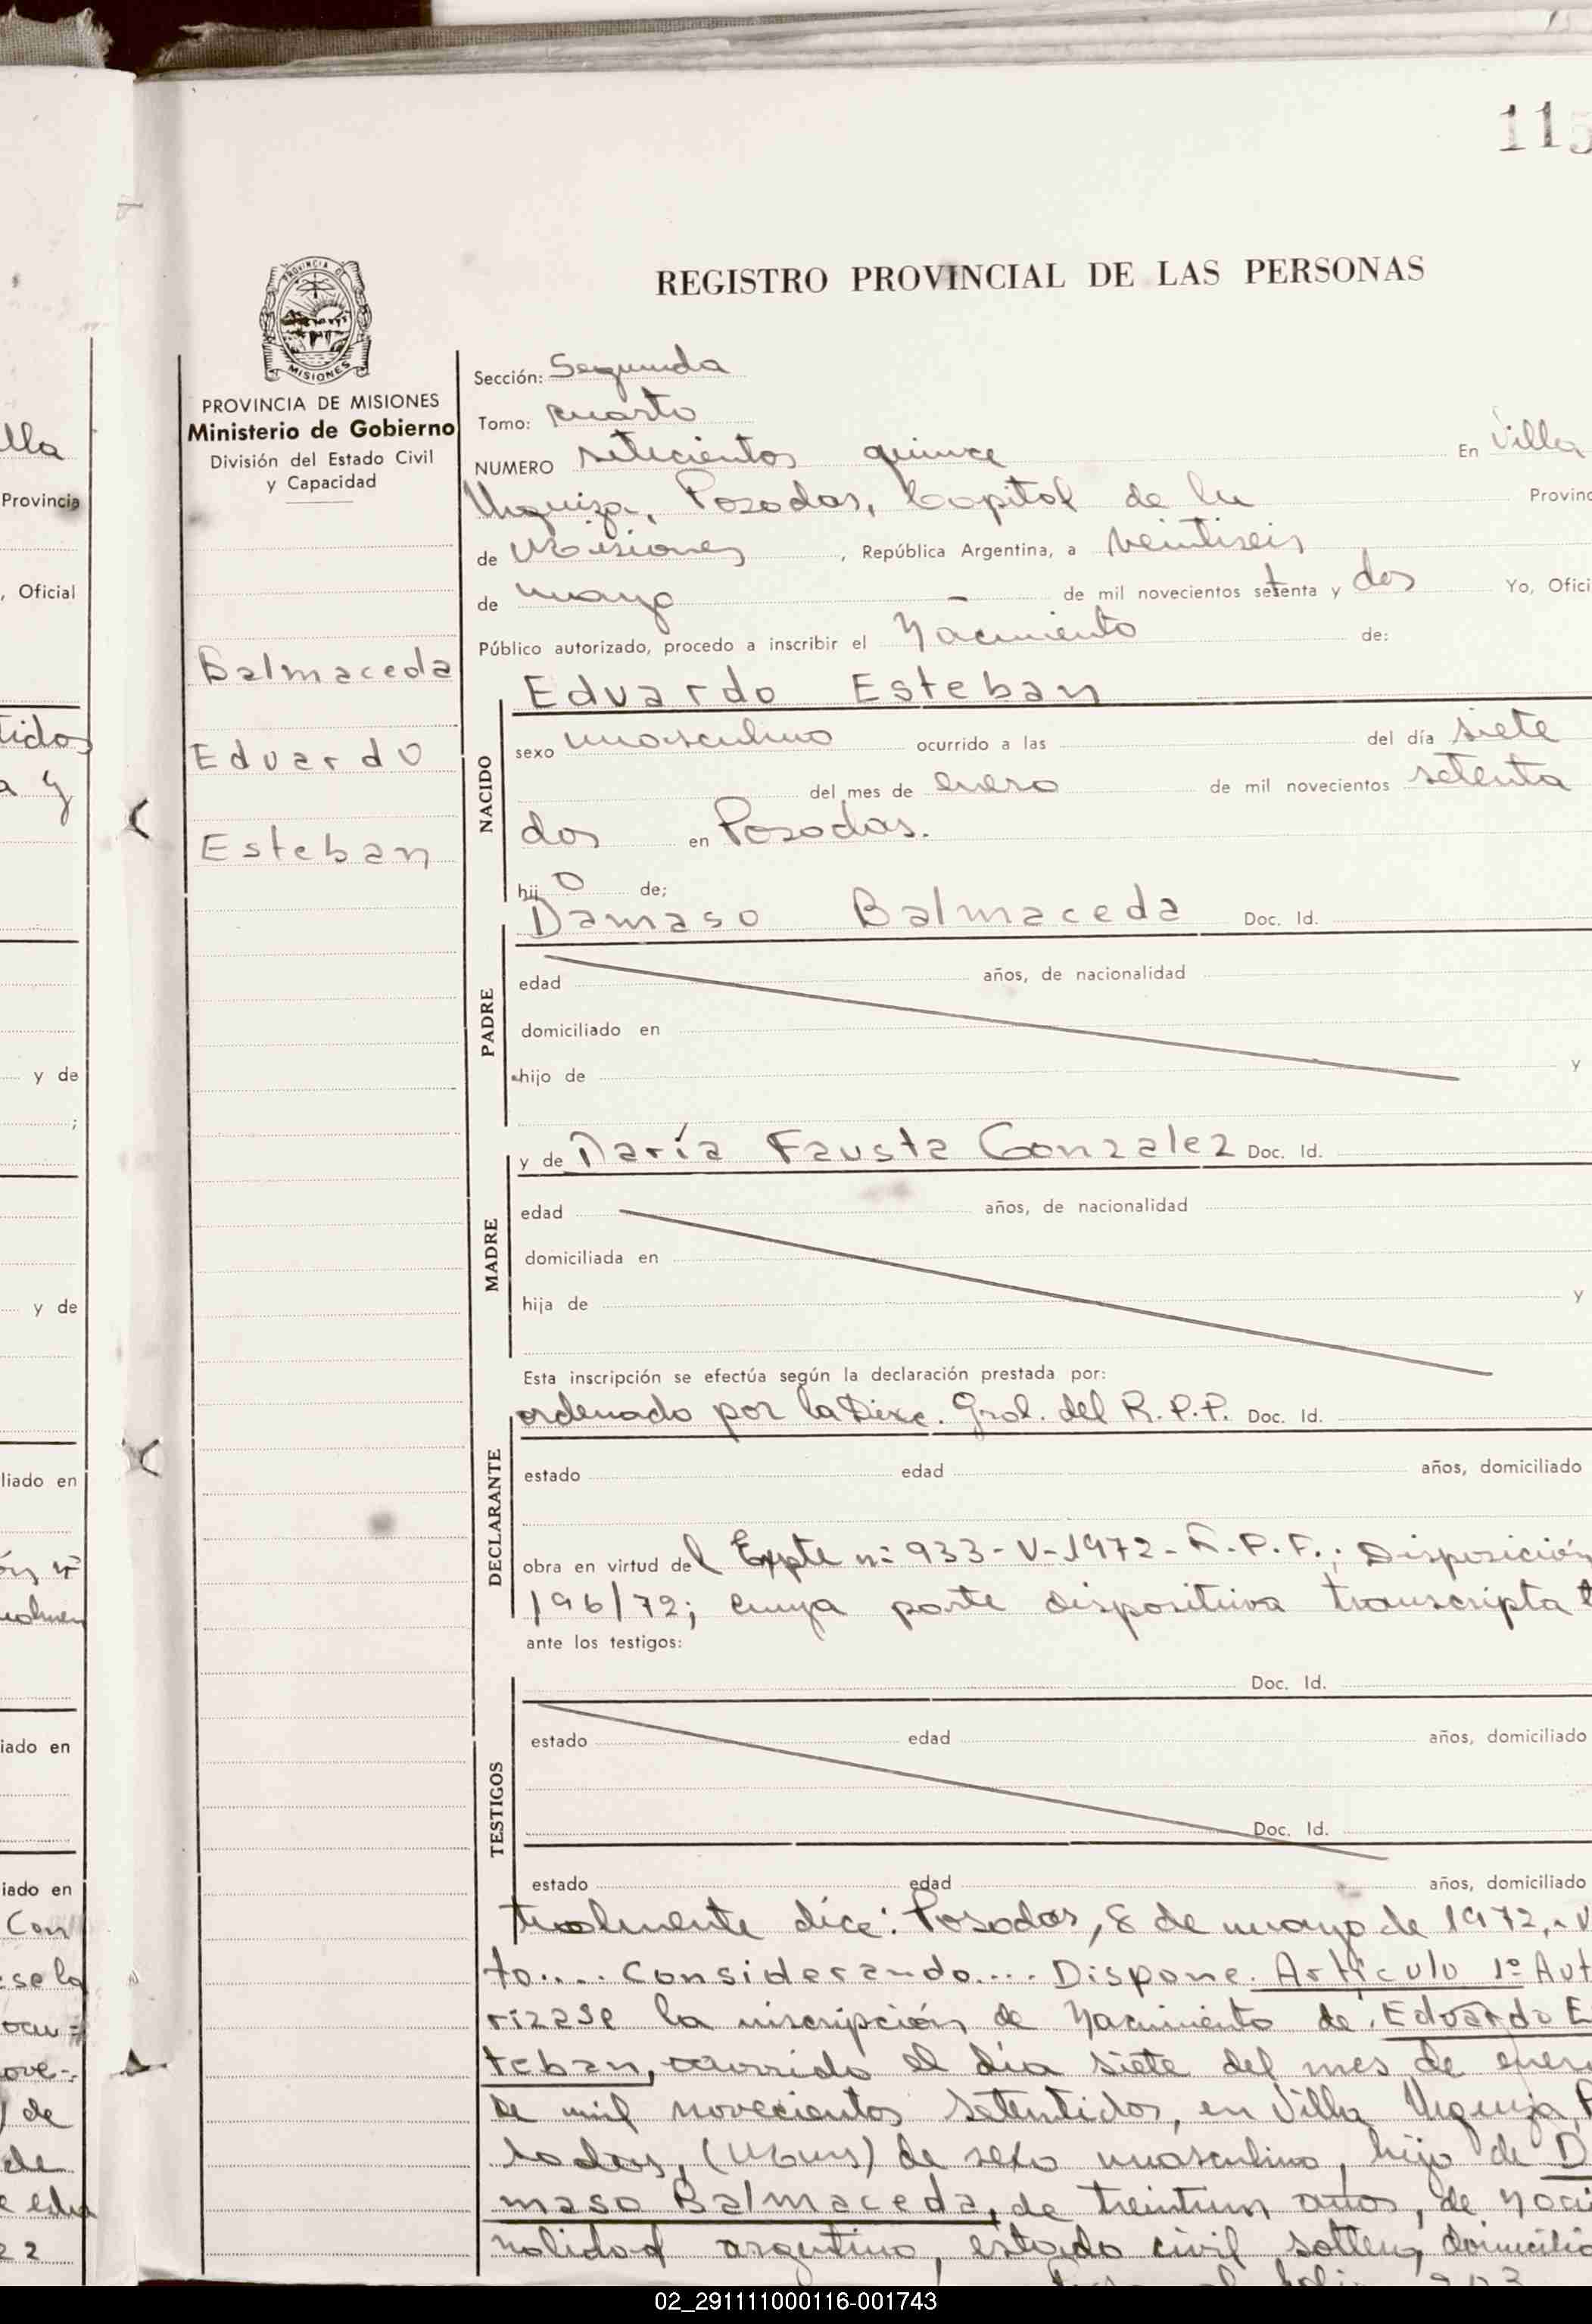 115
REGISTRO PROVINCIAL DE LAS PERSONAS
PROVINCIA DE MISIONES
Ministerio de Gobierno
División del Estado Civil
y Capacidad
Balmaceda
Eduardo
Esteban
Sección: Segunda
Tomo: cuarto
NUMERO setecientos quince En Villa
Urquiza, Posadas, Capital de la Provinc
de Misiones, República Argentina, a veintiseis
de mayo de mil novecientos setenta y dos Yo, Ofici
Público autorizado, procedo a inscribir el Nacimiento de:
Eduardo Esteban
NACIDO
sexo masculino ocurrido a las del día siete
del mes de enero de mil novecientos setenta
dos en Posadas.
hij o de;
Damaso Balmaceda Doc. Id.
PADRE
edad años, de nacionalidad
domiciliado en
hijo de y
y de María Fausta Gonzalez Doc. Id.
MADRE
edad años, de nacionalidad
domiciliada en
hija de y
Esta inscripción se efectúa según la declaración prestada por:
ordenado por la Direc. Gral. del R.P.P. Doc. Id.
DECLARANTE
estado edad años, domiciliado
obra en virtud del Expte nº 933-V-1972-R.P.P.; Disposición
196/72; cuya parte dispositiva transcripta t
ante los testigos:
Doc. Id.
TESTIGOS
estado edad años, domiciliado
Doc. Id.
estado edad años, domiciliado
tualmente dice: Posadas, 8 de mayo de 1972.- V
to.... Considerando.... Dispone. Artículo 1º Aut
rizase la inscripción de Nacimiento de Eduardo E
teban, ocurrido el día siete del mes de ener
de mil novecientos setentidos, en Villa Urquiza, P
sadas, (Mnes) de sexo masculino, hijo de D
maso Balmaceda, de treintiun años, de naci
nalidad argentino, estado civil soltero, domicilia
02_291111000116-001743